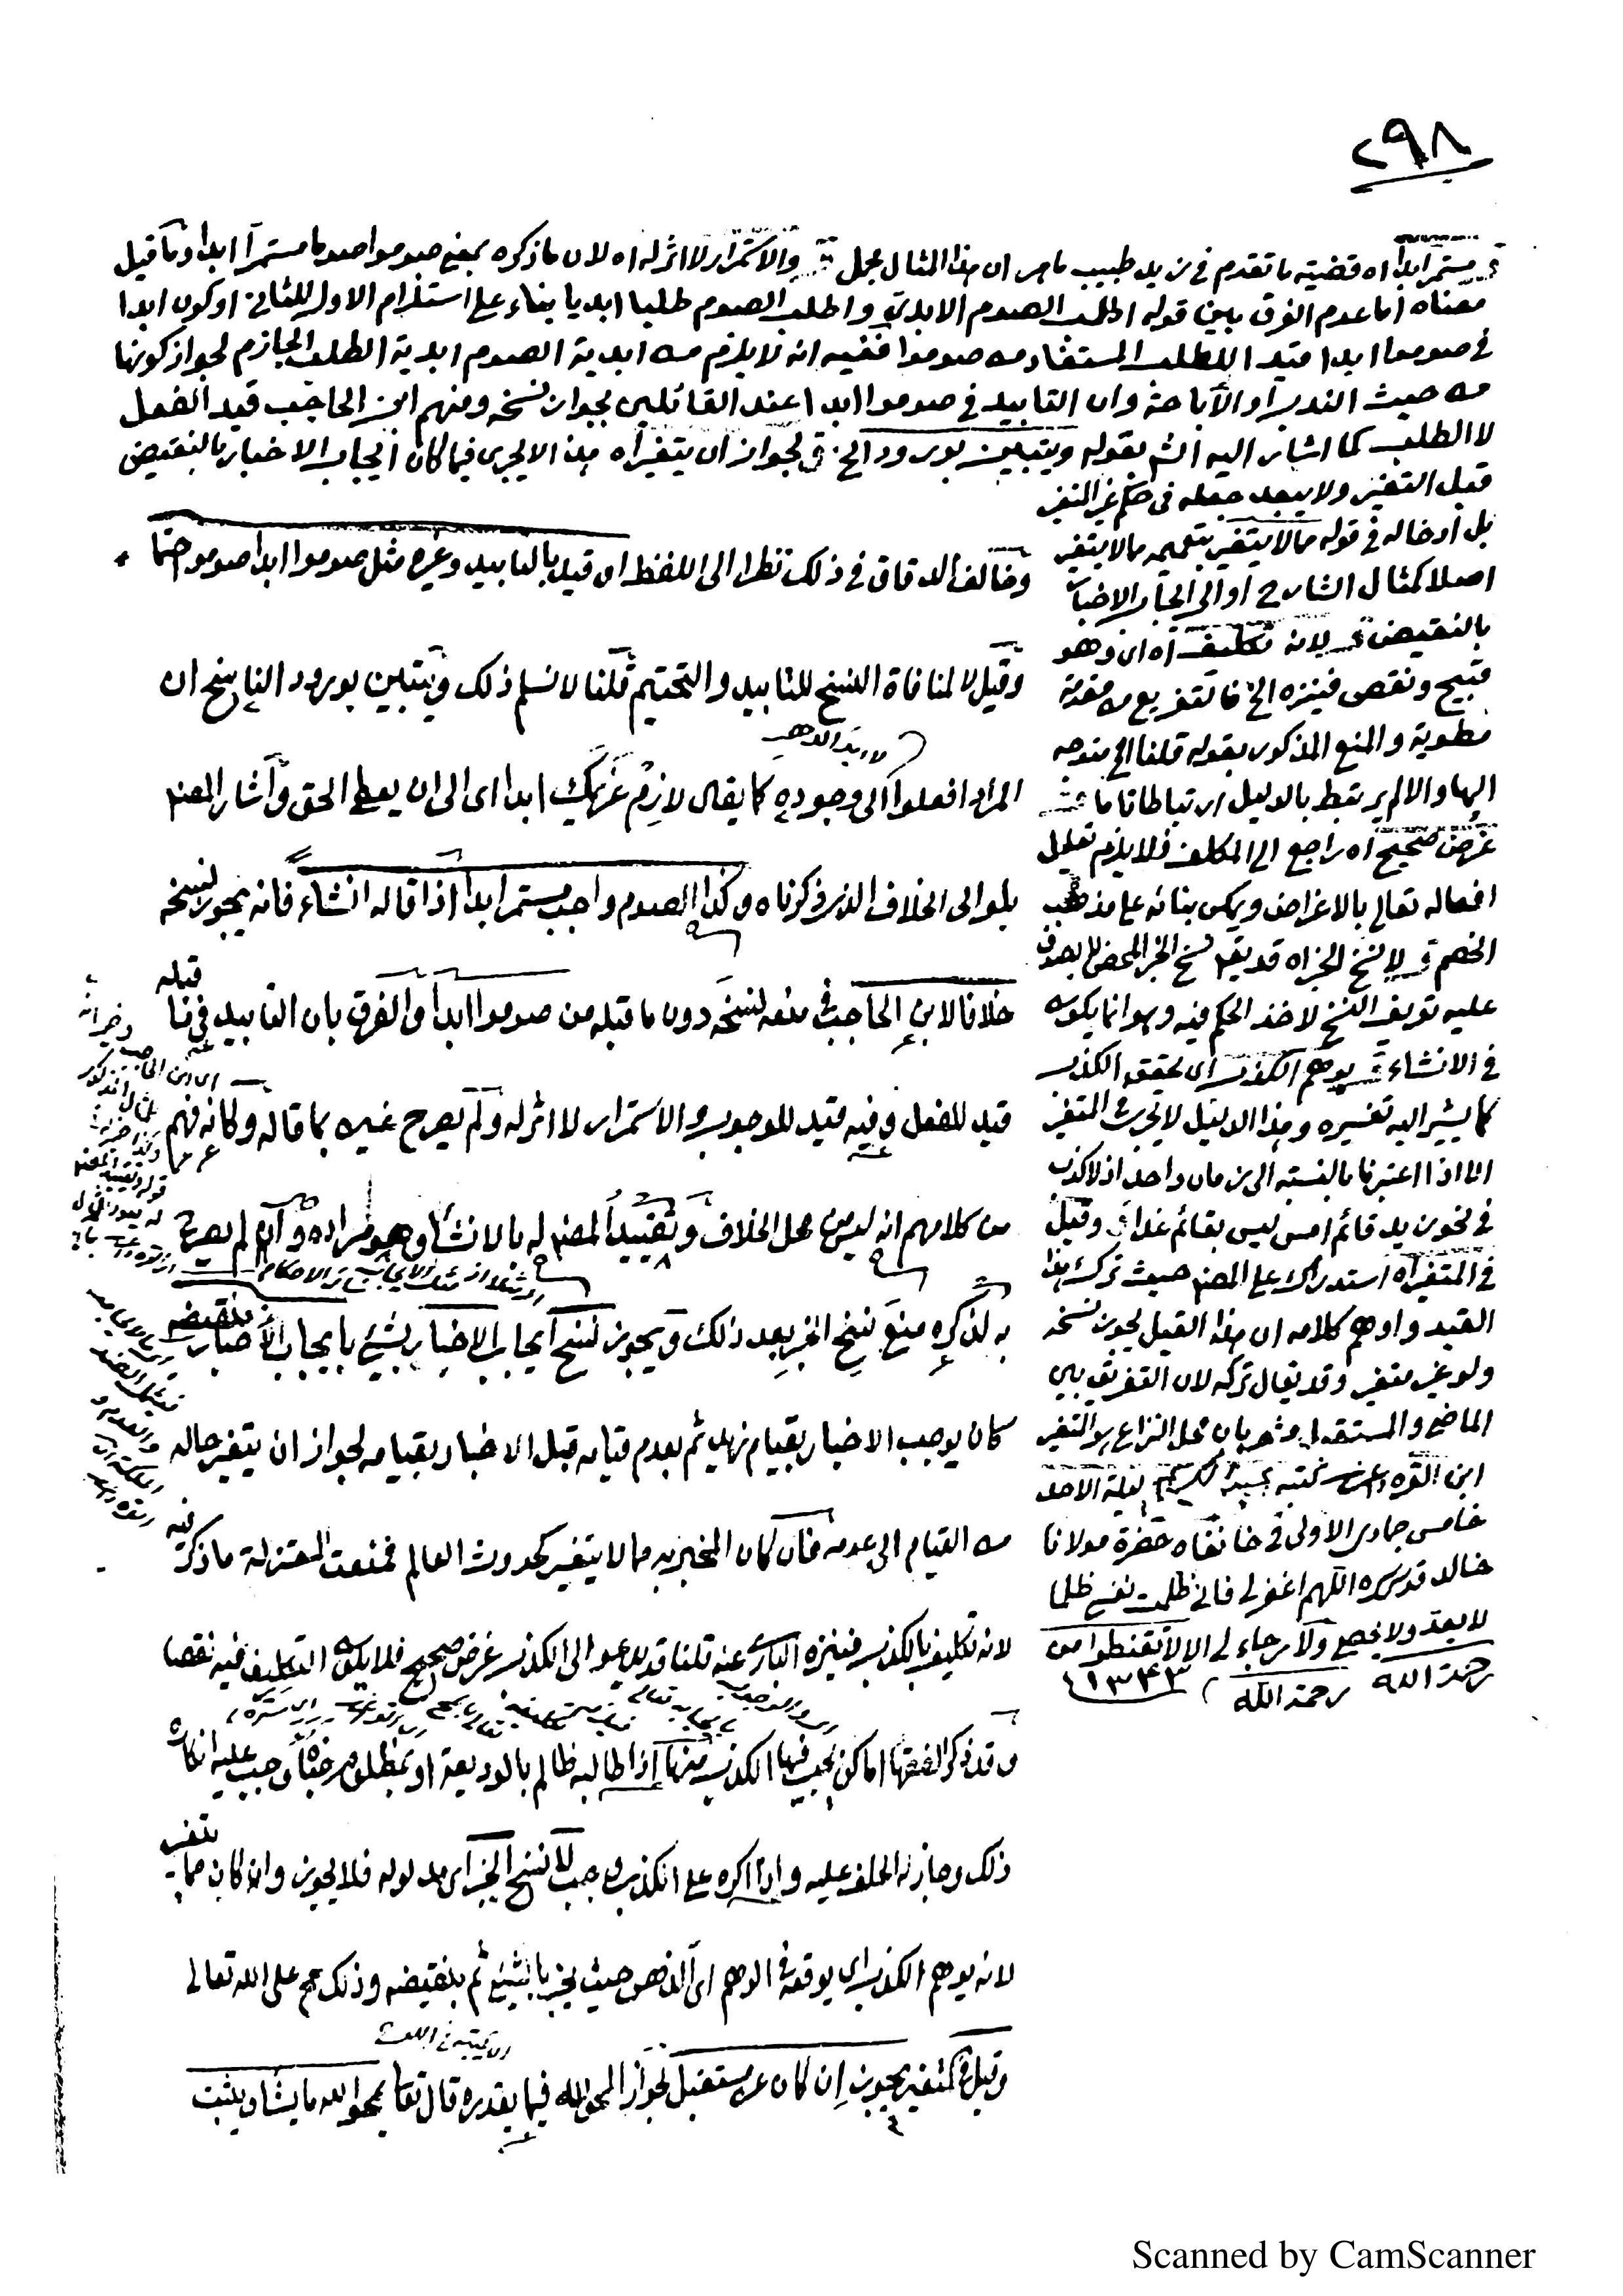 ٢٩٨
مستمر ابدا اه قضيته ما تقدم في زيد طبيب ماهر ان هذا المثال محمل والاستمرار لا اثر له اه لان ما ذكره بمعنى صوموا صوما مستمرا ابدا وما قيل
معناه اما عدم الفرق بين قوله اطلب الصوم الابدي واطلب الصوم طلبا ابديا بناء على استلزام الاول للثاني او كون ابدا
في صوموا ابدا قيد الطلب المستفاد من صوموا ففيه انه لا يلزم من ابدية الصوم ابدية الطلب الجازم لجواز كونها
من حيث الندب او الاباحة وان التابيد في صوموا ابدا عند القائلين بجواز نسخه ومنهم ابن الحاجب قيد الفعل
لا الطلب كما اشار اليه الش بقوله ويتبين بورود الخ لجواز ان يتغير اه هذا لا يجري فيما كان ايجاب الاخبار بالنقيض
قبل التغير ولا يبعد جعله في حكم غير المتغير
بل ادخاله في قوله مما لا يتغير بتعميم ما لا يتغير
اصلا كمثال الشارح او الى ايجاب الاخبار
بالنقيض لانه تكليف اه اي وهو
قبيح ونقص فينزه الخ فالتفريع من مقدمة
مطوية والمنع المذكور بقوله قلنا الخ متوجه
اليها والا لم يرتبط بالدليل ارتباطا تاما
غرض صحيح اه راجع الى المكلف فلا يلزم تعليل
افعاله تعالى بالاغراض ويمكن بنائه على مذهب
الخصم لا نسخ الخبر اه قد يقال نسخ الخبر المحض لا يصدق
عليه تعريف النسخ لاخذ الحكم فيه وهو انما يكون
في الانشاء يوهم الكذب اي يحقق الكذب
كما يشير اليه تفسيره وهذا الدليل لا يجري في المتغير
الا اذا اعتبرنا بالنسبة الى زمان واحد اذ لا كذب
في نحو زيد قائم امس ليس بقائم غدا وقيل
في المتغير اه استدراك على المصنف حيث ترك هذا
القيد واوهم كلامه ان هذا القيل يجوز نسخه
ولو غير متغير وقد يقال تركه لان التفريق بين
الماضي والمستقبل مشعر بان محل النزاع هو التغير
ابن القره داغي كتبه ليلة الاحد
خامس جمادى الاولى في خانقاه حضرة مولانا
خالد قدس سره اللهم اغفر لي فاني ظلمت نفسي ظلما
لا يعد ولا يحصى ولا رجاء لي الا لا تقنطوا من
رحمة الله رحمة الله ١٣٤٣
وخالف الدقاق في ذلك نظرا الى اللفظ اي قيد بالتابيد وغيره مثل صوموا ابدا صوموا حتما
وقيل لا لمنافاة النسخ للتابيد والتحتيم قلنا لا نسلم ذلك ويتبين بورود الناسخ ان
المراد افعلوا الى وجوده كما يقال لازم غريمك ابدا اي الى ان يعطي الحق واشار المصنف
بلو الى الخلاف الذي ذكرناه وكذا الصوم واجب مستمر ابدا اذا قاله انشاء فانه يجوز نسخه
خلافا لابن الحاجب في منعه نسخه دون ما قبله من صوموا ابدا والفرق بان التابيد فيما قبله
قيد للفعل وفيه قيد للوجوب والاستمرار لا اثر له ولم يصرح غيره بما قاله وكانه فهم
من كلامهم انه ليس من محل الخلاف وتقييد المصنف له بالانشاء وهو مراده وان لم يصرح
به لذكره منع نسخ الخبر بعد ذلك ويجوز نسخ ايجاب الاخبار بشيء بايجاب الاخبار بنقيضه
كان يوجب الاخبار بقيام زيد ثم بعدم قيامه قبل الاخبار بقيامه لجواز ان يتغير حاله
من القيام الى عدمه فان كان المخبر به مما لا يتغير كحدوث العالم فمنعت المعتزلة ما ذكر فيه
لانه تكليف بالكذب فينزه الباري عنه قلنا قد يدعو الى الكذب غرض صحيح فلا يكون التكليف فيه نقصا
وقد ذكر الفقهاء اماكن يجب فيها الكذب منها اذا طالبه ظالم بالوديعة او بمظلوم خباه وجب عليه انكار
ذلك وجاز له الحلف عليه واذا اكره على الكذب وجب لا نسخ الخبر اي مدلوله فلا يجوز وان كان مما يتغير
لانه يوهم الكذب اي يوقعه في الوهم اي الذهن حيث يخبر بالشيء ثم بنقيضه وذلك مح على الله تعالى
وقيل في المتغير يجوز ان كان عن مستقبل لجواز المحو لله فيما يقدره قال تعالى يمحو الله ما يشاء ويثبت
Scanned by CamScanner